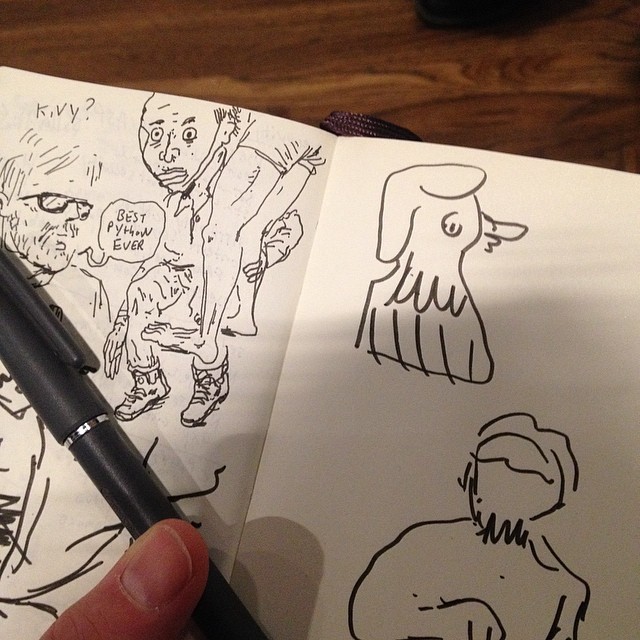 KIVY?
BEST
PYTHON
EVER